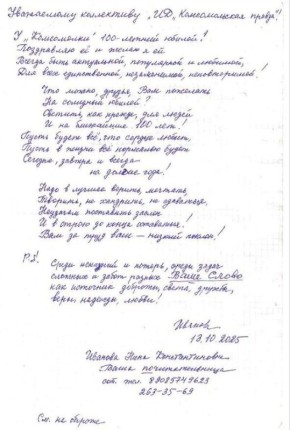 Уважаемому коллективу „ИД „Комсомольская правда"!
У „Комсомолки" 100-летний юбилей!
Поздравляю ей и желаю я ей
Всегда быть актуальной, популярной и любимой,
Для всех единственной, незаменимой, неповторимой!
Что можно, друзья, Вам пожелать
На солидный юбилей?
Светить, как прежде, для людей
И на ближайшие 100 лет!
Пусть будет всё, что сердце любит,
Пусть в жизни всё нормально будет
Сегодня, завтра и всегда
на долгие года!
Надо в лучшее верить, мечтать,
Творить, не хандрить, не сдаваться,
Неудачам поставить заслон
И в строю до конца оставаться!
Вам за труд ваш – низкий поклон!
P.S! Среди исканий и потерь, среди задач
сложных и забот разных Ваше Слово
как источник доброты, света, дружбы,
веры, надежды, любви!
Иванов
19.10.2025
Иванова Нина Константиновна
Ваша почитательница
сот. тел. 89085749623
269-35-69
См. на обороте